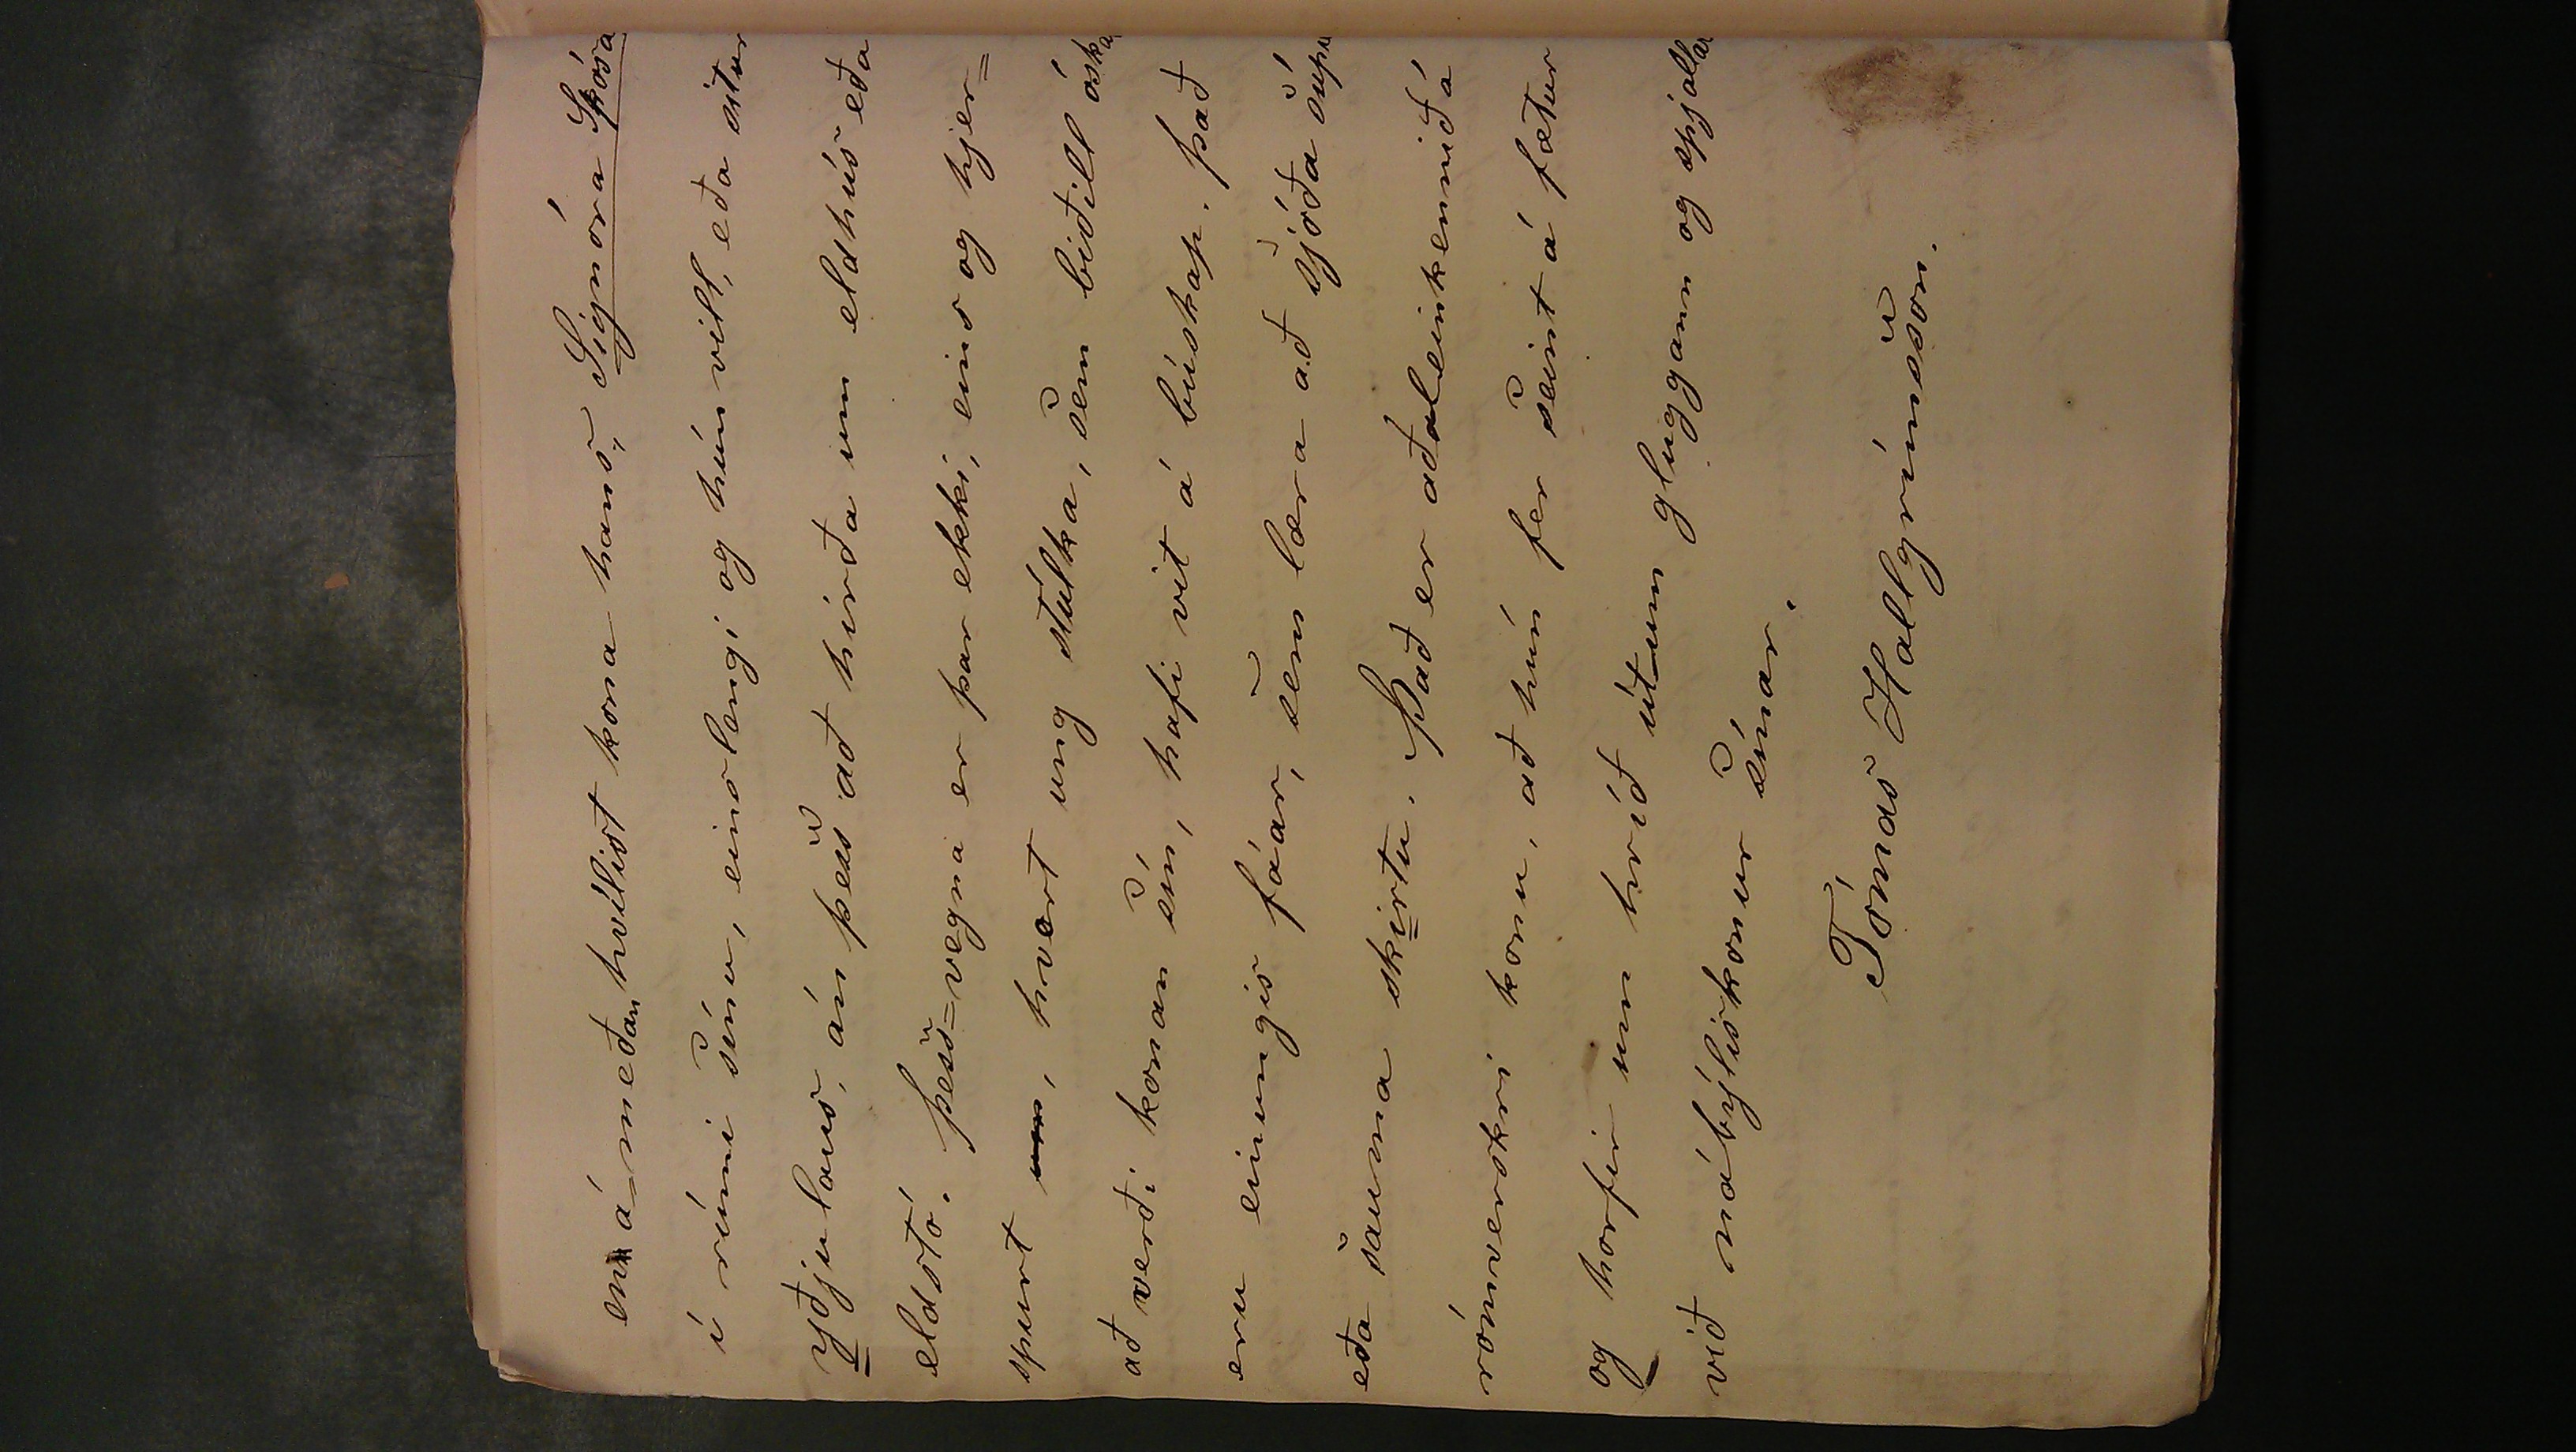 en á meðan hvílist kona hans, Signóra Skósa
í rúmi sínu, eins lengi og hún vill, eða situr
yðjulaus, án þess að hirða um eldhús eða
eldstó. Þess=vegna er þar ekki, eins og hjer=
spurt, hvert ung stúlka, sem biðill óskar
að verði konan sín, hafi vit á búskap. Það
eru einungis fáar, sem læra að sjóða súpu
eða sauma skirtu. Það er aðaleinkennið á
rómverskri konu, að hún fer seint á fætur
og horfir um hríð útum gluggann og spjallar
við nábýliskonur sínar.
Tómas Hallgrímsson.